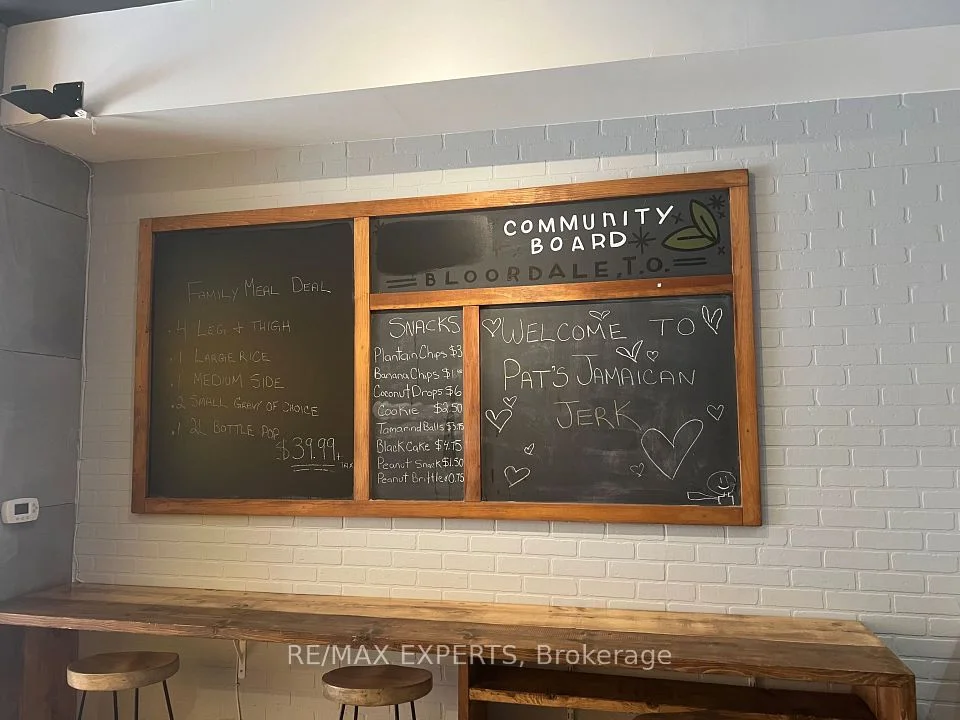 COMMUNITY
BOARD
BLOORDALE, T.O.
FAMILY MEAL DEAL
. 4 LEG + THIGH
. 1 LARGE RICE
. 1 MEDIUM SIDE
. 2 SMALL GRAVY OF CHOICE
. 1 2L BOTTLE POP
$39.99 + TAX
SNACKS
Plantain Chips $3
Banana Chips
Coconut Drops $6
Cookie $2.50
Tamarind Balls
Black Cake $4.75
Peanut Snack $1.50
Peanut Brittle 0.75
WELCOME TO
PAT'S JAMAICAN
JERK
RE/MAX EXPERTS, Brokerage